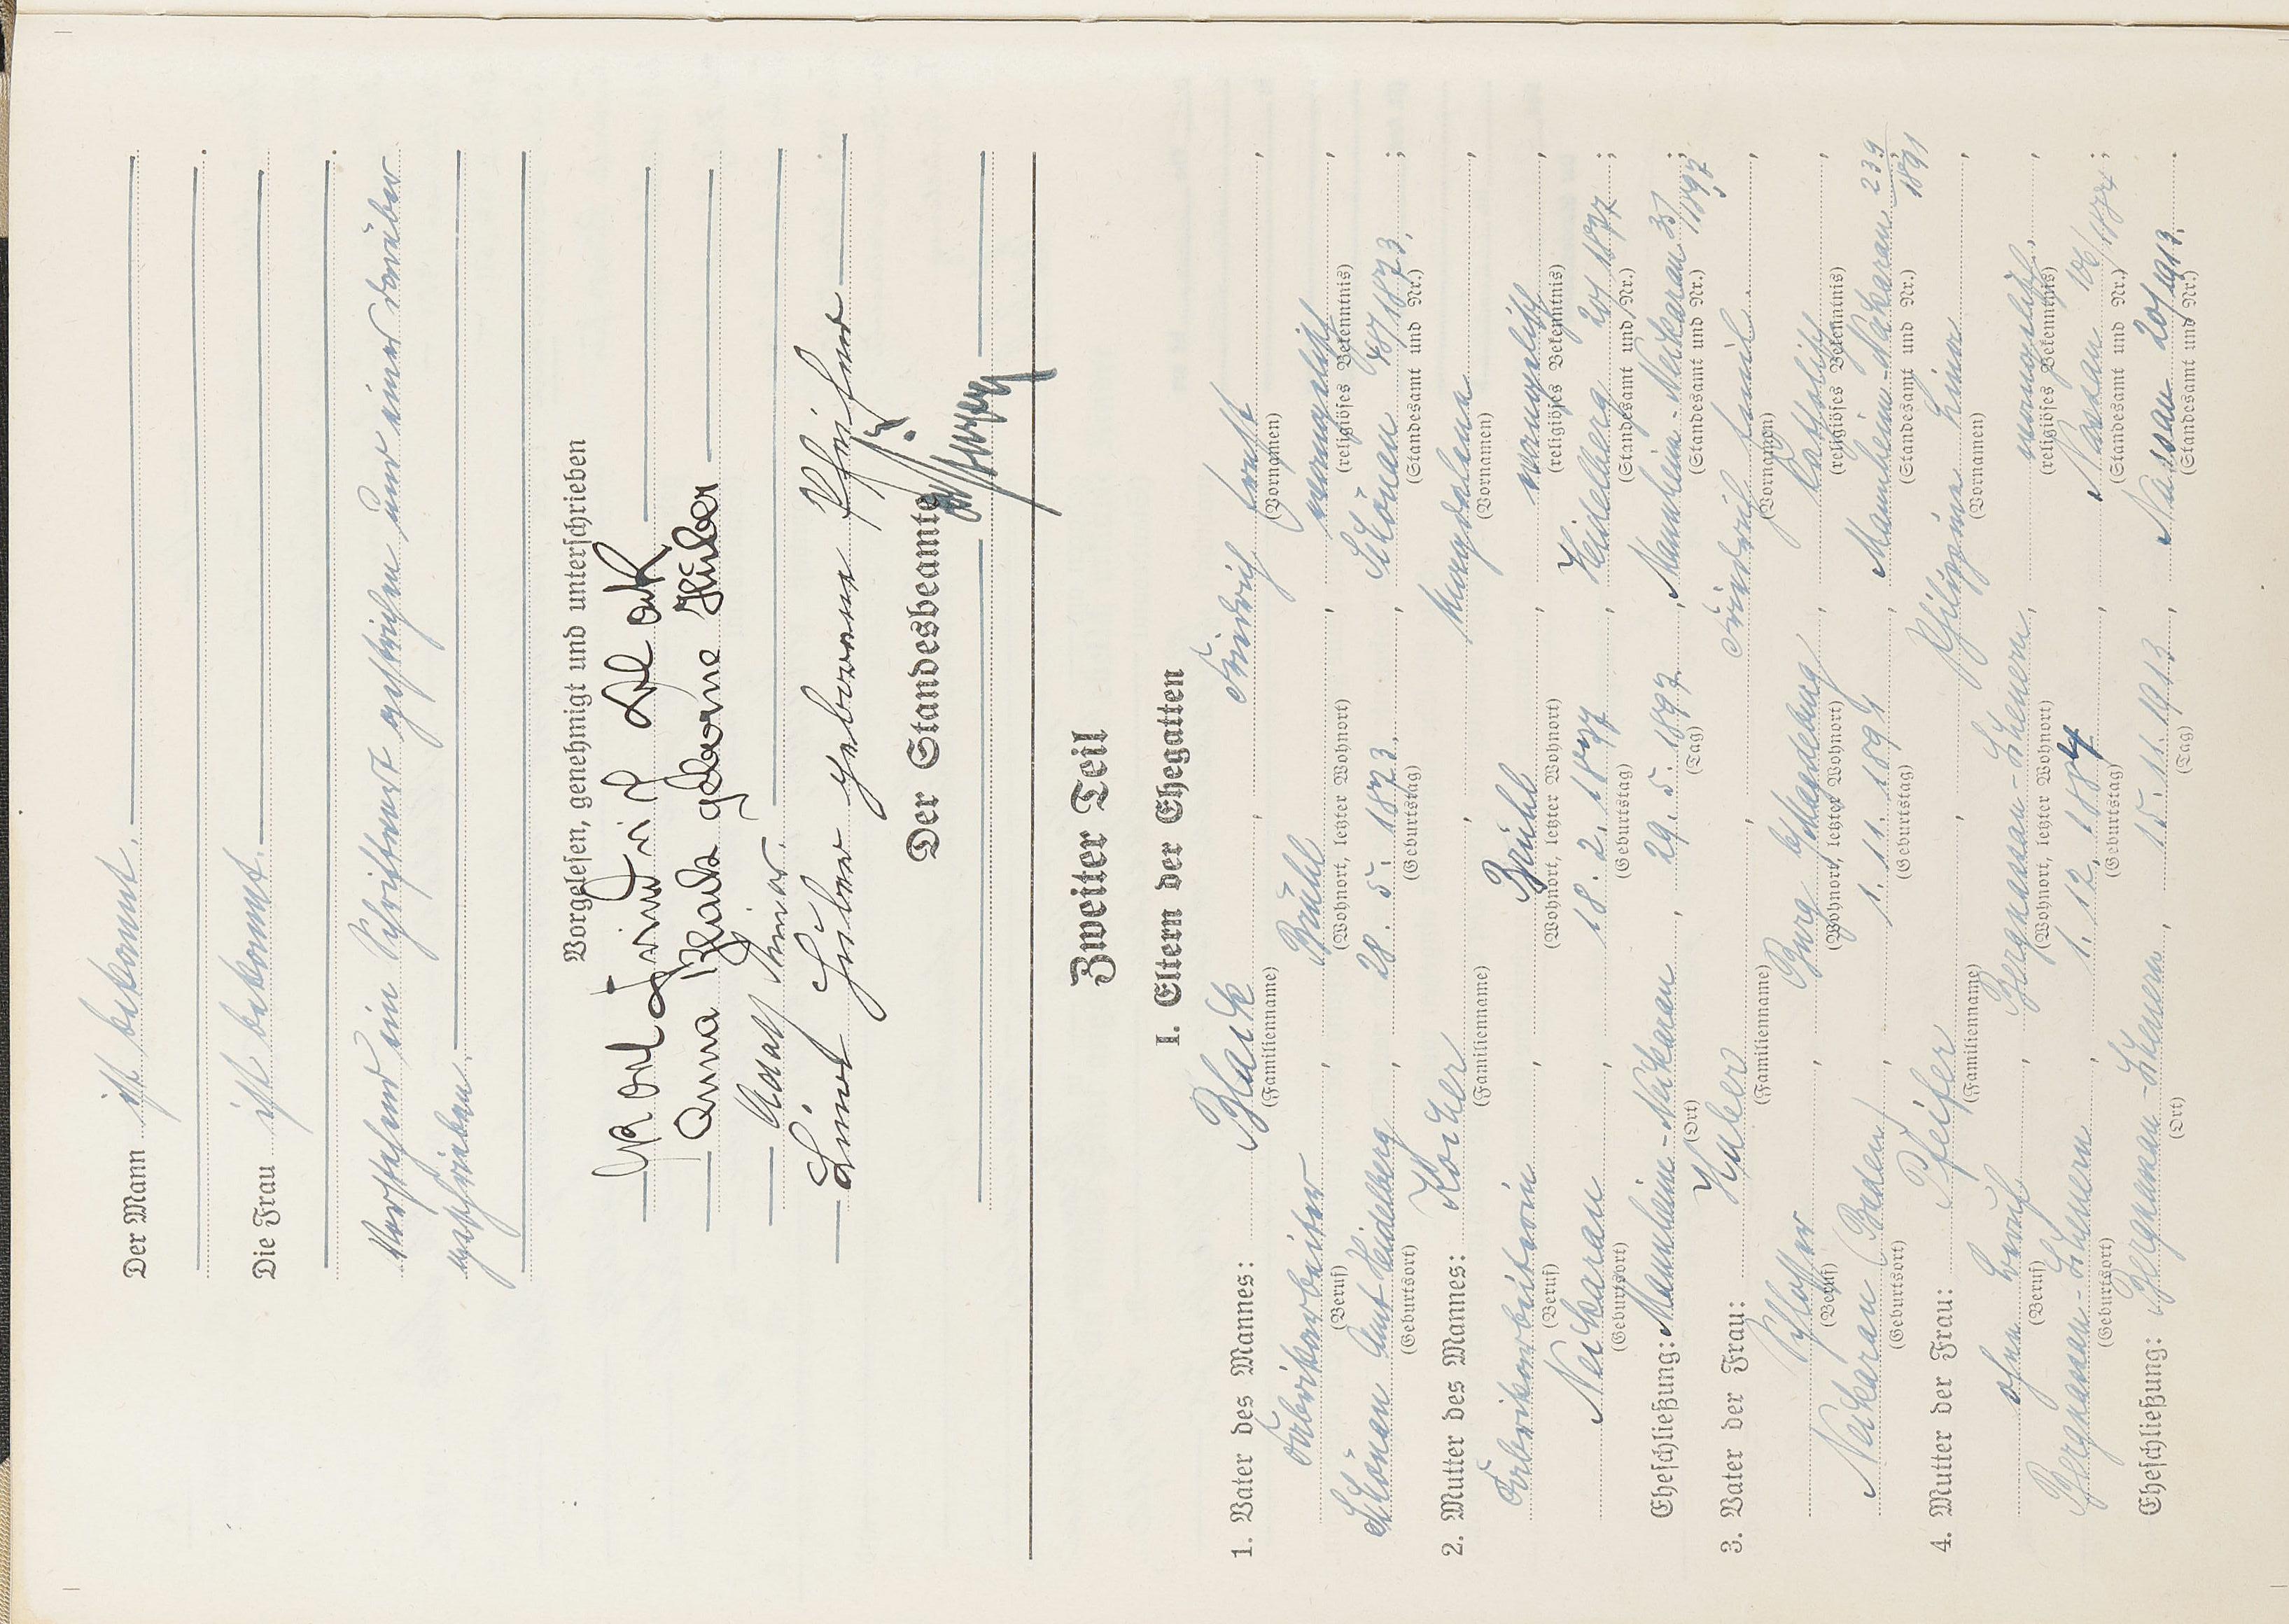 Der Mann ist bekannt.
Die Frau ist bekannt.
Vorstehend ein Schriftwort gestrichen und eines darüber
geschrieben.
Vorgelesen, genehmigt und unterschrieben
Karl Friedrich Black
Anna Black geborne Huber
Adolf
Lina Huber geborene Pfeifer
Der Standesbeamte
Zweiter Teil
I. Eltern der Ehegatten
1. Vater des Mannes: Black, Friedrich Ernst,
(Familienname) (Vornamen)
Fabrikarbeiter, Brühl, evangelisch,
(Beruf) (Wohnort, letzter Wohnort) (religiöses Bekenntnis)
Schönau Amt Heidelberg, 28. 5. 1873, Schönau 48/1873.;
(Geburtsort) (Geburtstag) (Standesamt und Nr.)
2. Mutter des Mannes: Kocher, Magdalena,
(Familienname) (Vornamen)
Fabrikarbeiterin, Brühl, evangelisch,
(Beruf) (Wohnort, letzter Wohnort) (religiöses Bekenntnis)
Neckarau, 18. 2. 1877, Heidelberg 201/1877;
(Geburtsort) (Geburtstag) (Standesamt und Nr.)
Eheschließung: Mannheim-Neckarau, 29. 5. 1897, Mannheim-Neckarau 35/1897;
(Ort) (Tag) (Standesamt und Nr.)
3. Vater der Frau: Huber, Friedrich Daniel,
(Familienname) (Vornamen)
Schlosser, Burg b/Magdeburg, katholisch,
(Beruf) (Wohnort, letzter Wohnort) (religiöses Bekenntnis)
Neckarau (Baden), 1. 11. 1891, Mannheim-Neckarau 239/1891;
(Geburtsort) (Geburtstag) (Standesamt und Nr.)
4. Mutter der Frau: Pfeifer, Philippine Lina,
(Familienname) (Vornamen)
ohne Beruf, Bergnassau-Scheuern, evangelisch,
(Beruf) (Wohnort, letzter Wohnort) (religiöses Bekenntnis)
Bergnassau-Scheuern, 1. 12. 1884, Nassau 106/1884;
(Geburtsort) (Geburtstag) (Standesamt und Nr.)
Eheschließung: Bergnassau-Scheuern, 15. 11. 1913, Nassau 20/1913.
(Ort) (Tag) (Standesamt und Nr.)